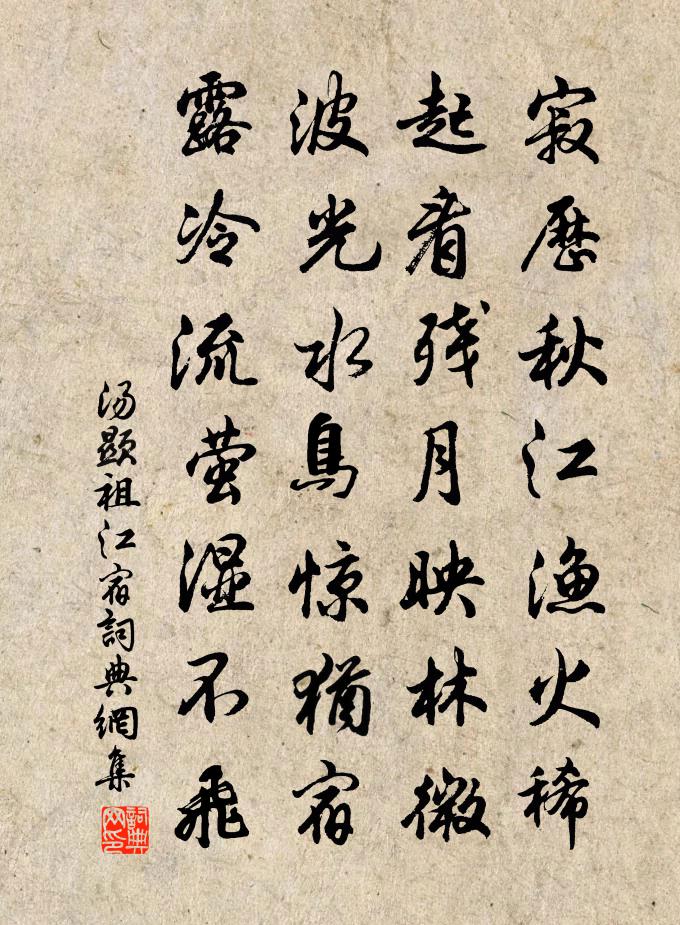 寂歷秋江漁火稀
起看残月映林微
波光水鳥惊猶宿
露冷流萤湿不飛
汤顯祖江宿詞典網集
詞典网印